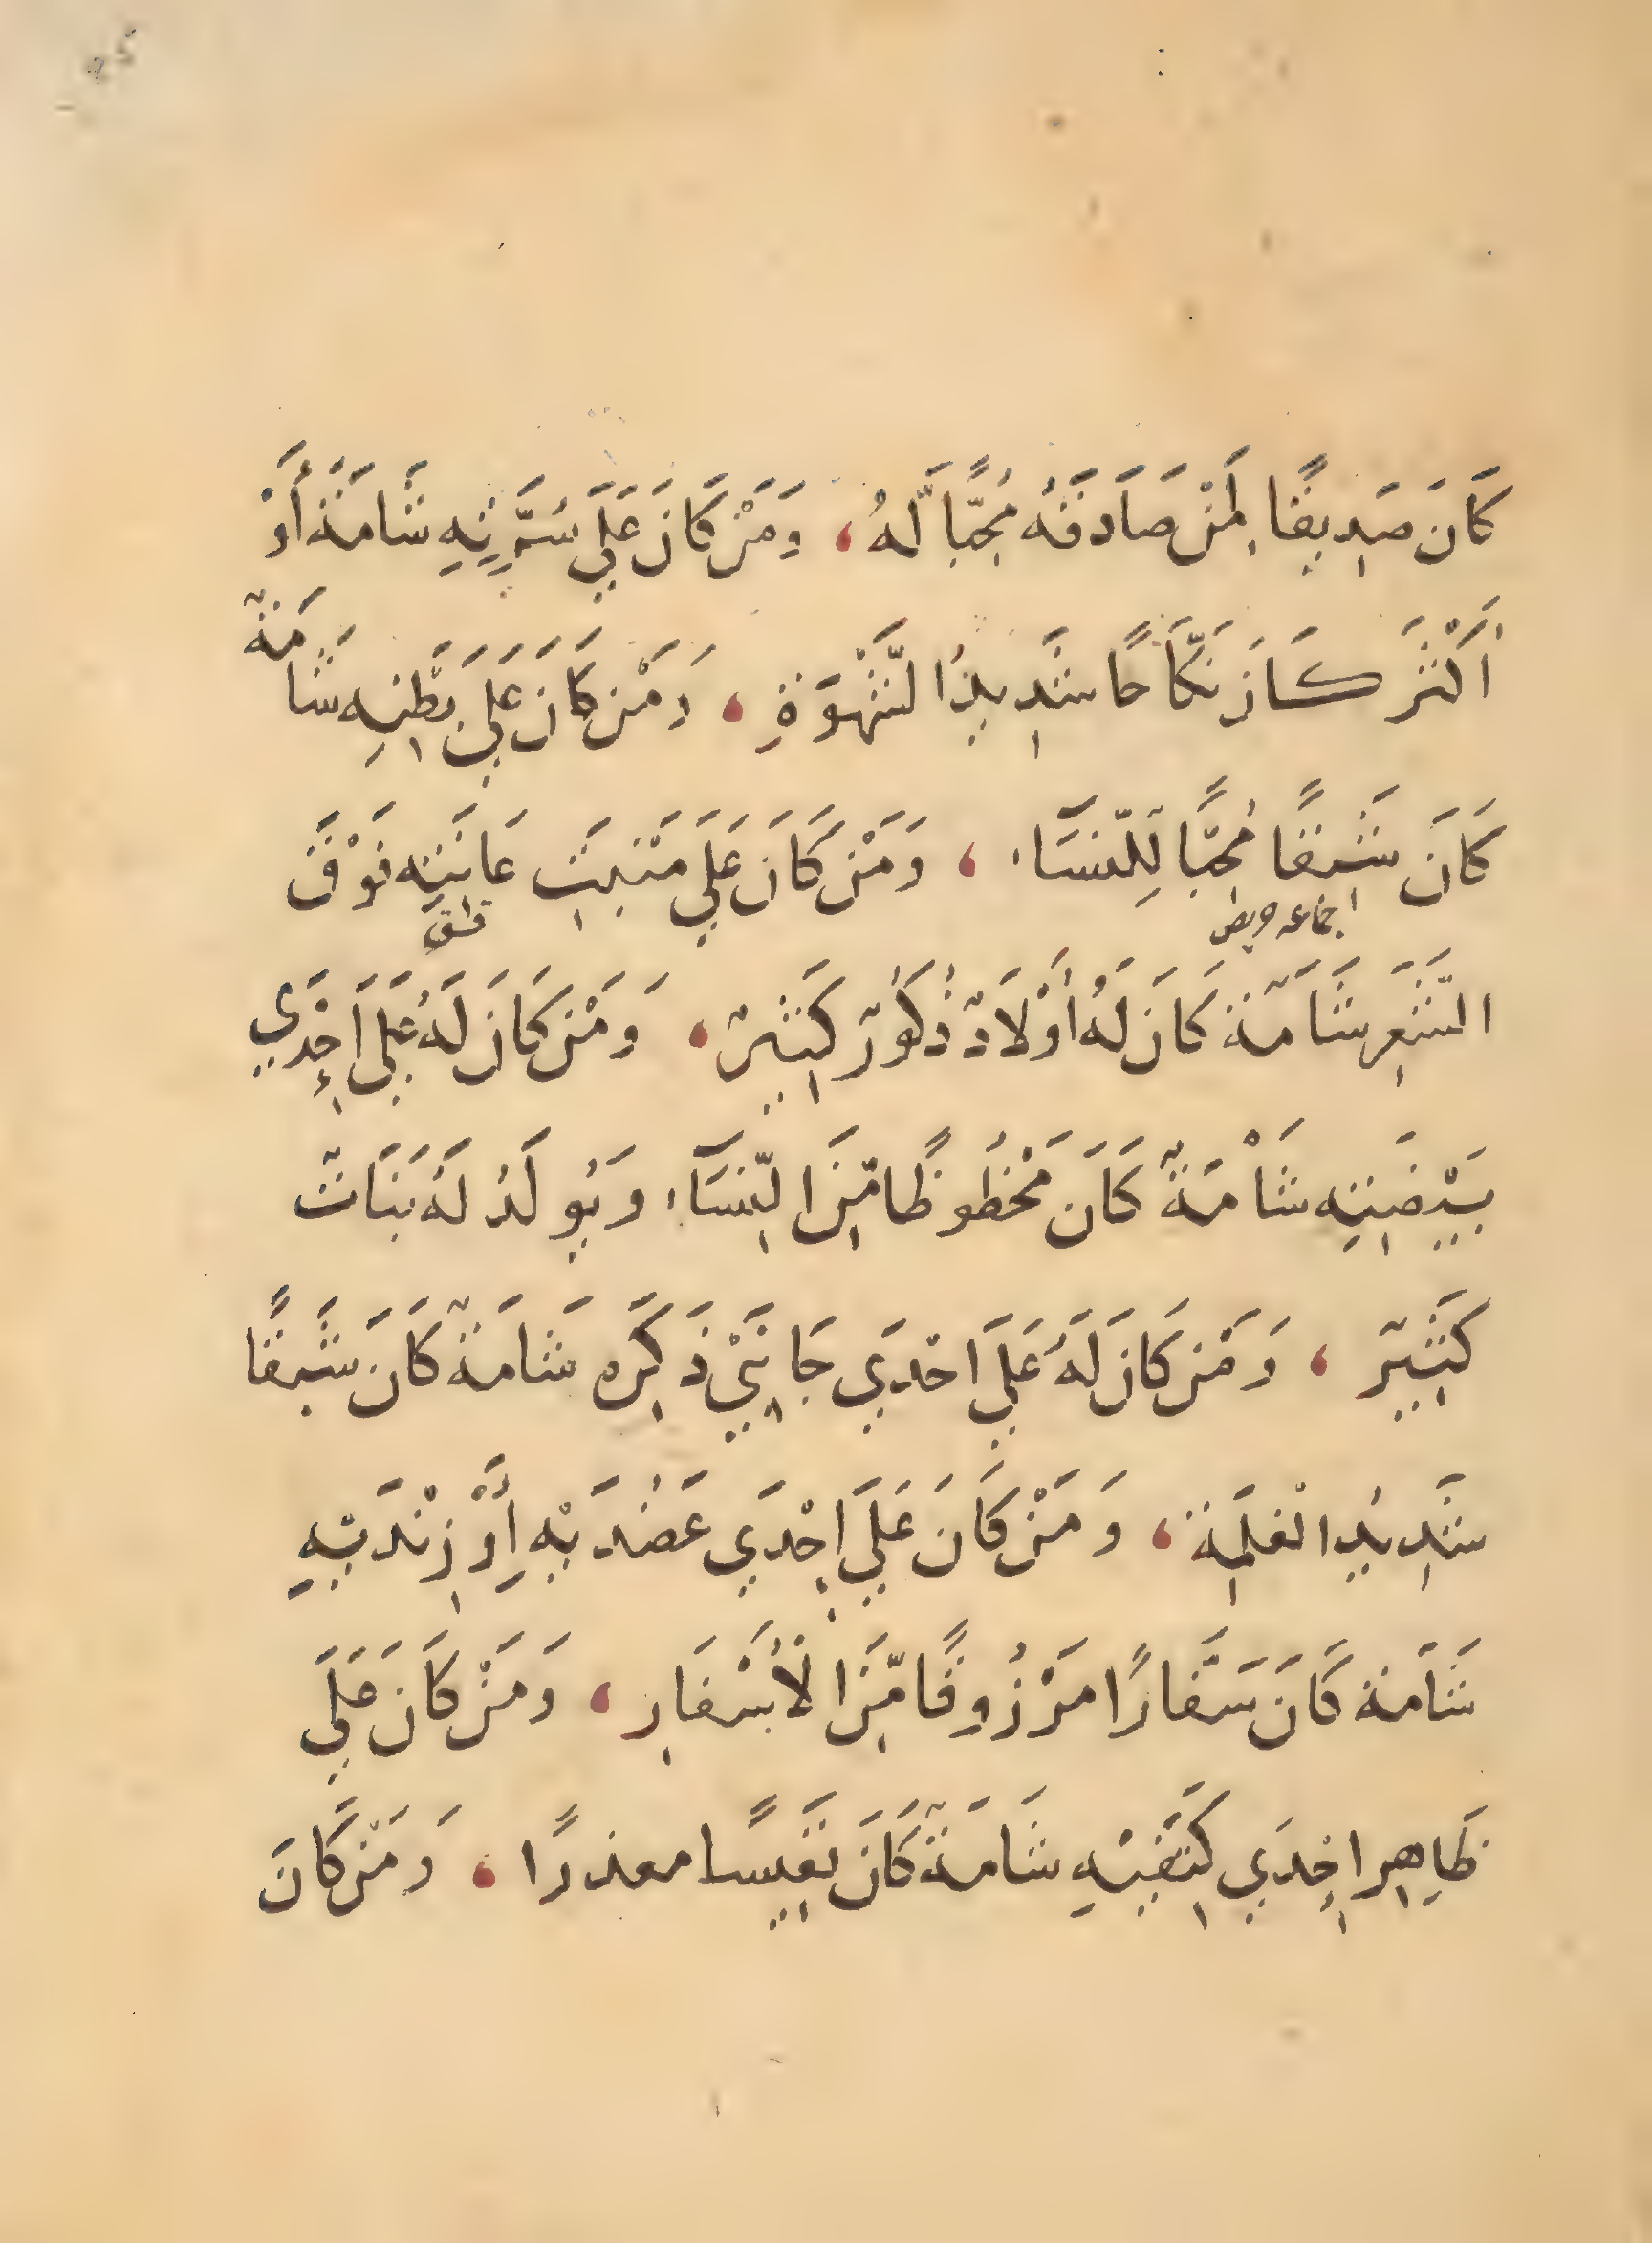 كَانَ صَدِيقًا لِمَنْ صَادَقَهُ مُحِبًّا لَهُ ، وَمَنْ كَانَ عَلَي سُرَّتِهِ شَامَةٌ أَوْ
أَكْثَرَ كَانَ نَكَّاحًا شَدِيدُ الشَّهْوَةِ ، وَمَنْ كَانَ عَلَي بَطْنِهِ شَامَةٌ
كَانَ شَبِقًا مُحِبًّا لِلنِّسَاءِ ، وَمَنْ كَانَ عَلَي مَنْبِتِ عَانَتِهِ فَوْقَ
جماعه حريص
الشَّعِرِ شَامَةٌ كَانَ لَهُ أَوْلَادٌ ذُكُورٌ كَثِيرٌ ، وَمَنْ كَانَ لَهُ عَلَي إِحْدَي
بَيْضَتَيْهِ شَامَةٌ كَانَ مَحْظُوظًا مِّنَ النِّسَاءِ وَيُولَدُ لَهُ بَنَاتٌ
كَثِيرٌ ، وَمَنْ كَانَ لَهُ عَلَي احْدَي جَانِبَيْ ذَكَرِه شَامَةٌ كَانَ شَبِقًا
شَدِيدُ الْغلمَة ، وَمَنْ كَانَ عَلَي إِحْدَي عَضُدَيْهِ أَوْ زِنْدَيْهِ
شَامَة كَانَ سَفَّارًا مَرْزُوقًا مِّنَ الْأَسْفَارِ ، وَمَنْ كَانَ عَلَي
ظَاهِرِ إِحْدَي كَتِفَيْهِ شَامَةٌ كَانَ نَفِيسًا معذرًا ، وَمَنْ كَانَ